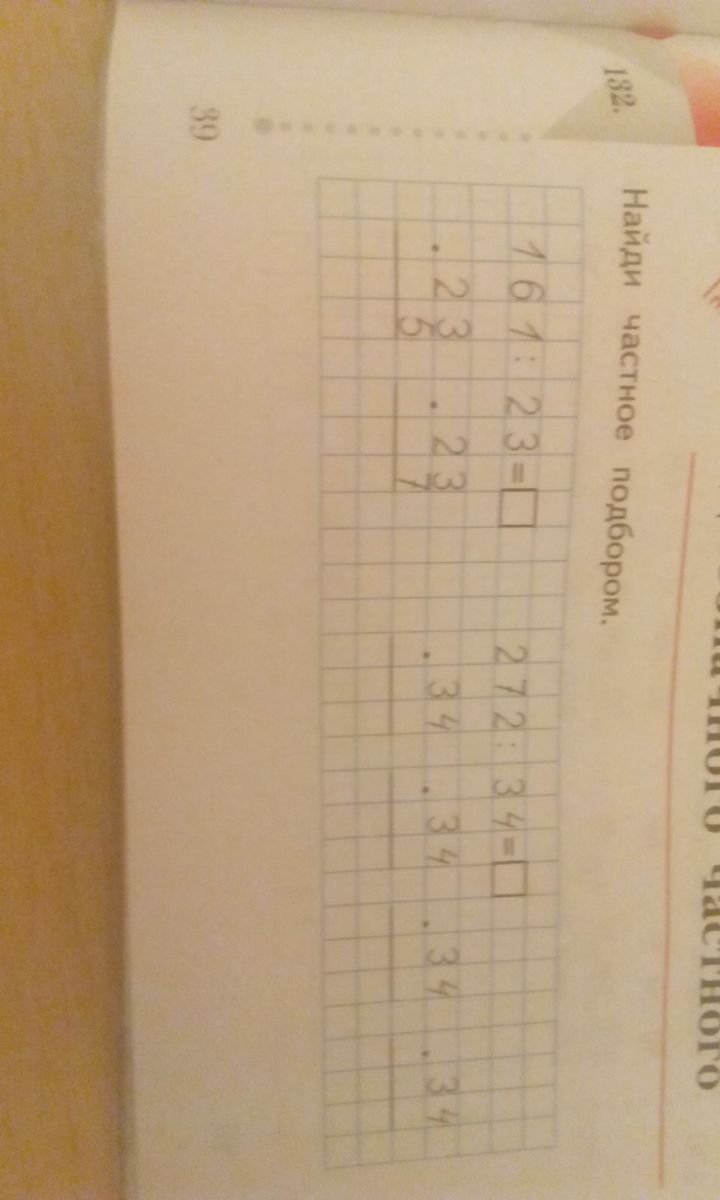 частного
132. Найди частное подбором.
161:23=□ 272:34=□
. 23 . 23 . 34 . 34 . 34 . 34
5 7
39